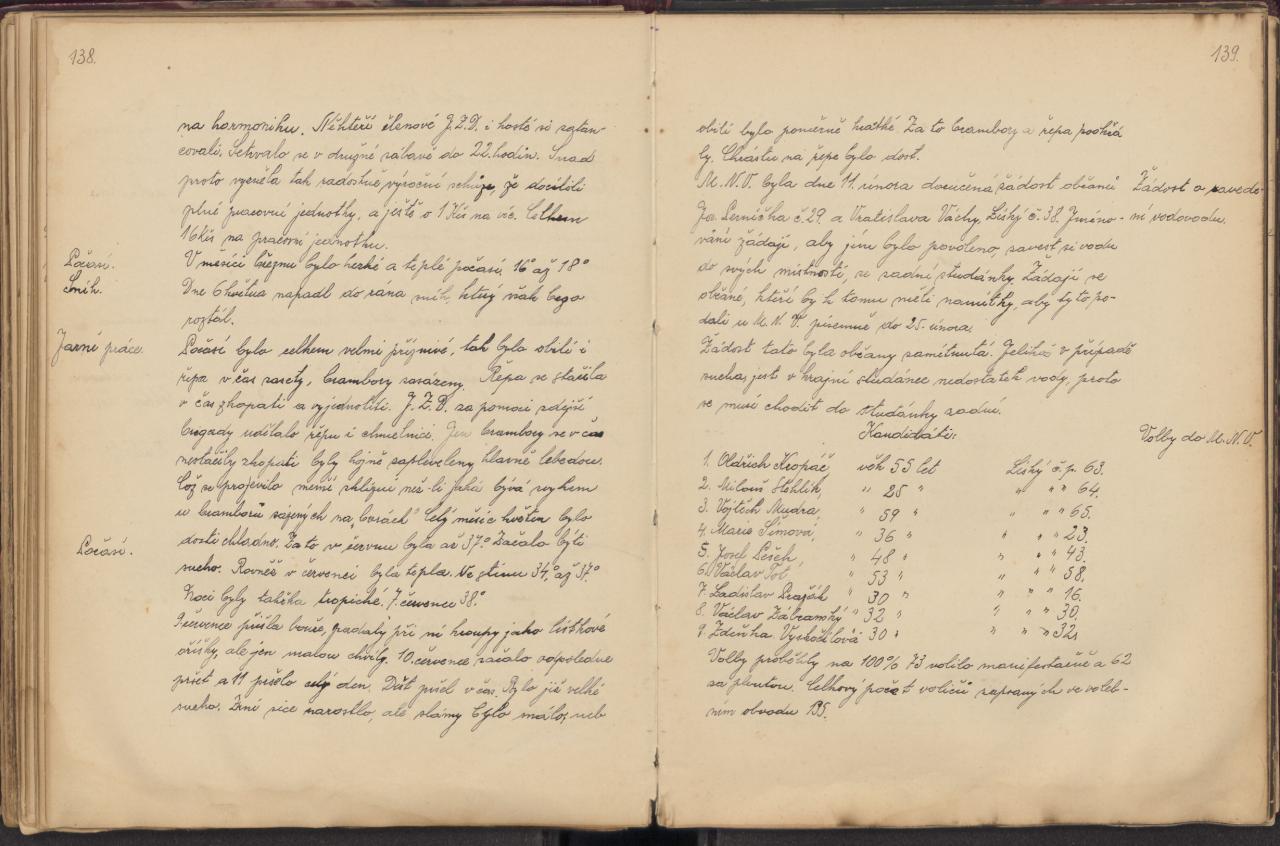 138.
na harmoniku. Někteří členové J.Z.D. i hosté si zatan-
čovali. Setrvalo se v družné zábavě do 22. hodin. Snad
proto vyzněla tak radostně výroční schůze, že docílili
plné pracovní jednotky, a ještě o 1 Kčs na víc. Celkem
16 Kčs na pracovní jednotku.
Počasí. V měsíci březnu bylo hezké a teplé počasí, 16° až 18°
Sníh. Dne 6 května napadl do rána sníh, který však brzo
roztál.
Jarní práce. Počasí bylo celkem velmi příznivé, tak bylo obilí i
řepa v čas zasety, brambory zasázeny. Řepa se stačila
v čas zkopati a vyjednotiti. J.Z.D. za pomoci zdejší
brigady udělalo řepu i chmelnici. Jen brambory se v čas
nestačily zkopati byly hojně zapleveleny hlavně lebedou.
Což se projevilo menší sklizní než-li jaká bývá zvykem
u bramborů sázených na "horách" Celý měsíc květen bylo
Počasí. dosti chladno. Za to v červnu byla až 37°. Začalo býti
sucho. Rovněž v červenci byla tepla. Ve stínu 34° až 37°
Noci byly takřka tropické. 7. července 38°
9 července přišla bouře, padaly při ní kroupy jako lískové
oříšky, ale jen malou chvíly. 10. července začalo odpoledne
pršet a 11 pršelo celý den. Déšť přišel v čas. Bylo již velké
sucho. Zrní sice narostlo, ale slámy bylo málo, neb
139.
obilí bylo poměrně krátké. Za to brambory a řepa pookřá
ly. Chrástu na řepe bylo dost.
M.N.V. byla dne 11. února doručena žádost občanů Žádost o zavede-
Jos. Perníčka č. 29. a Vratislava Váchy, Lišký č. 38. Jmeno- ní vodovodu.
vaní žádají, aby jim bylo povoleno, zavest si vodu
do svých místností, ze zadní studánky. Žádají se
občané, kteří by k tomu měli namitky, aby tyto po-
dali u M.N.V. písemně do 25. února.
Žádost tato byla občany zamítnutá. Jelikož v případě
sucha, jest v krajní studánce nedostatek vody, proto
se musí chodit do studánky zadní.
Kandidáti: Volby do M.N.V.
1. Oldřich Kropáč, věk 55 let Lišký č.p. 63.
2. Miloš Stehlík, " 25 " " " " 64.
3. Vojtěch Mudra, " 59 " " " " 65.
4. Marie Šímová, " 36 " " " " 23.
5. Josef Lešek, " 48 " " " " 43.
6. Václav Tot, " 53 " " " " 58.
7. Ladislav " 30 " " " " 16.
8. Václav Zábranský " 32 " " " " 30.
9. Zdeňka Vyskočilová 30 " " " " 32.
Volby proběhly na 100% 73 volilo manifestačně a 62
za plentou. Celkový počet voličů zapsaných ve voleb-
ním obvodu 135.